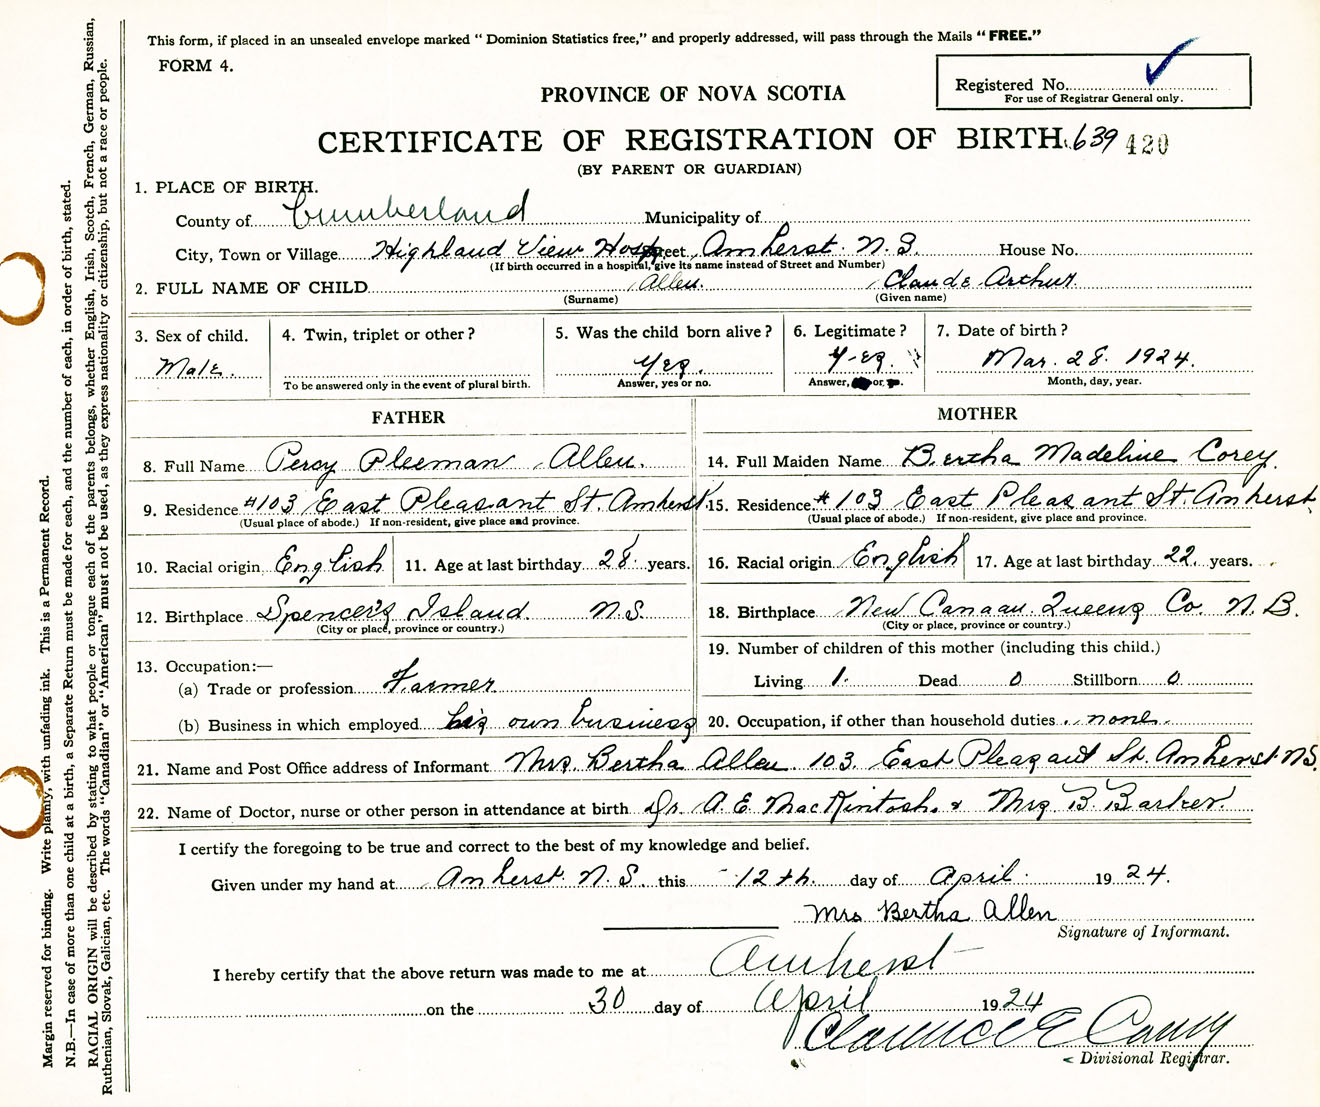 This form, if placed in an unsealed envelope marked "Dominion Statistics free," and properly addressed, will pass through the Mails "FREE."
FORM 4.
Registered No.
For use of Registrar General only.
PROVINCE OF NOVA SCOTIA
CERTIFICATE OF REGISTRATION OF BIRTH. 639 420
(BY PARENT OR GUARDIAN)
1. PLACE OF BIRTH.
County of Cumberland Municipality of
City, Town or Village Highland View Hosp Street Amherst. N.S. House No.
(If birth occurred in a hospital, give its name instead of Street and Number)
2. FULL NAME OF CHILD Allen. Claude Arthur
(Surname) (Given name)
3. Sex of child. 4. Twin, triplet or other? 5. Was the child born alive? 6. Legitimate? 7. Date of birth?
Male. Yes. Yes. Mar. 28. 1924.
To be answered only in the event of plural birth. Answer, yes or no. Answer, or Month, day, year.
FATHER MOTHER
8. Full Name Percy Pleeman Allen. 14. Full Maiden Name Bertha Madeline Corey.
9. Residence #103 East Pleasant St. Amherst. 15. Residence. #103 East Pleasant St. Amherst.
(Usual place of abode.) If non-resident, give place and province. (Usual place of abode.) If non-resident, give place and province.
10. Racial origin English 11. Age at last birthday 28. years. 16. Racial origin English 17. Age at last birthday 22. years.
12. Birthplace Spencer's Island. N.S. 18. Birthplace New Canaan. Queens Co. N.B.
(City or place, province or country.) (City or place, province or country.)
13. Occupation:— 19. Number of children of this mother (including this child.)
(a) Trade or profession Farmer Living 1. Dead 0 Stillborn 0
(b) Business in which employed his own business 20. Occupation, if other than household duties none.
21. Name and Post Office address of Informant Mrs. Bertha Allen. 103. East Pleasant St. Amherst. N.S.
22. Name of Doctor, nurse or other person in attendance at birth Dr. A. E. MacKintosh. & Mrs B. Barker.
I certify the foregoing to be true and correct to the best of my knowledge and belief.
Given under my hand at Amherst. N.S. this 12th. day of April. 1924.
Mrs Bertha Allen
Signature of Informant.
I hereby certify that the above return was made to me at Amherst
on the 30 day of April 1924
Clarence E Casey
Divisional Registrar.
Margin reserved for binding. Write plainly, with unfading ink. This is a Permanent Record.
N.B.—In case of more than one child at a birth, a Separate Return must be made for each, and the number of each, in order of birth, stated.
RACIAL ORIGIN will be described by stating to what people or tongue each of the parents belongs, whether English, Irish, Scotch, French, German, Russian,
Ruthenian, Slovak, Galician, etc. The words "Canadian" or "American" must not be used, as they express nationality or citizenship, but not a race or people.